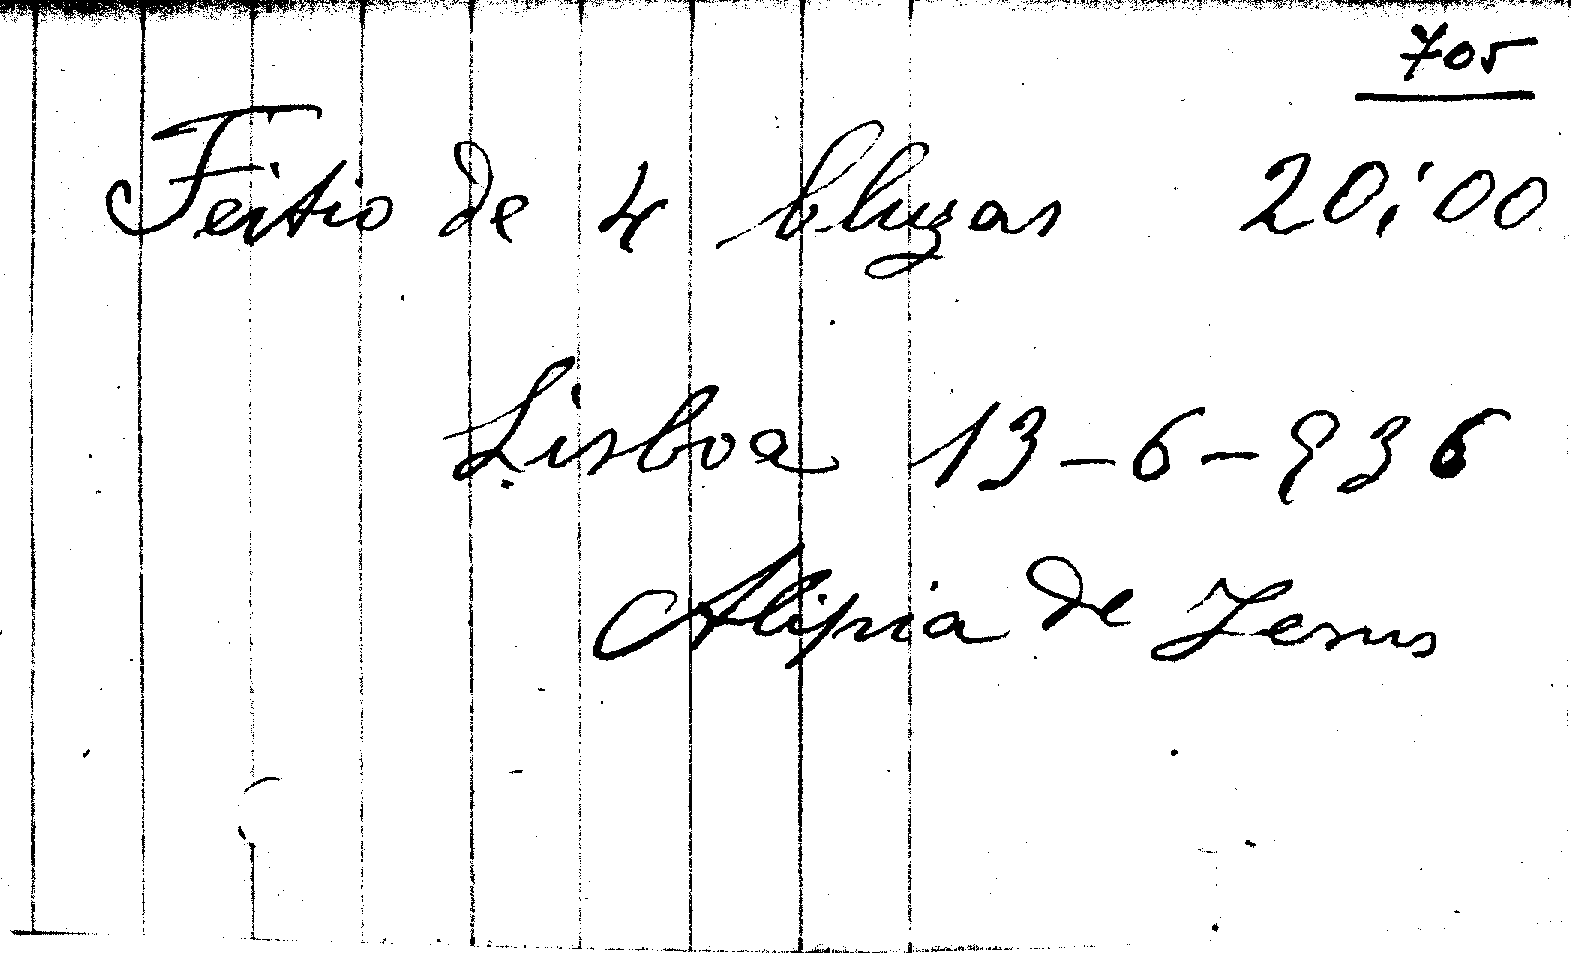 705
Feitio de 4 bluzas 20;00
Lisboa 13-6-936
Alipia de Jesus